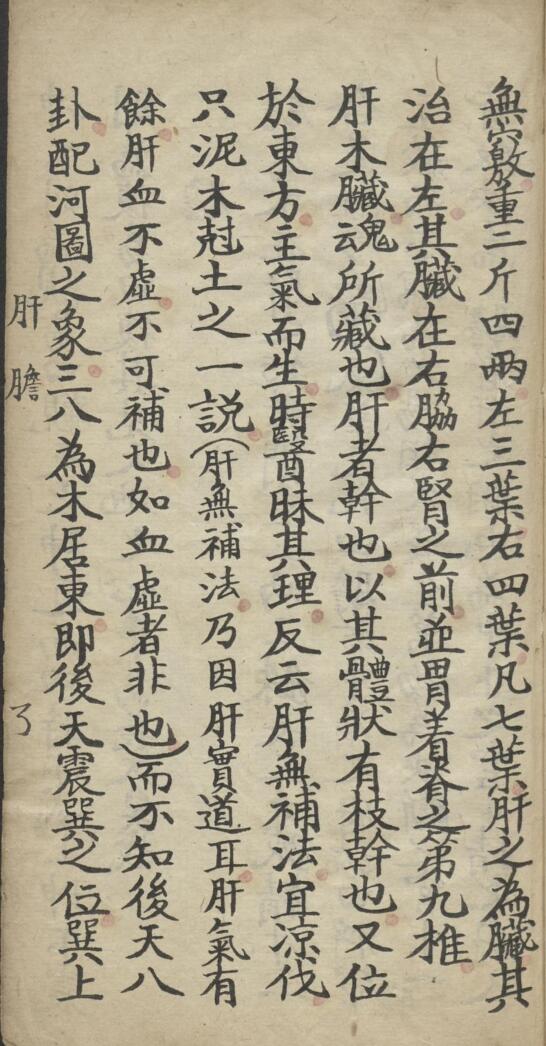 無穴敷重二斤四兩左三葉右四葉凡七葉肝之為臟其
治在左其臟在右脇右腎之前並胃着脊之第九椎
肝木臟云魂所藏也肝者幹也以其體狀有枝幹也又位
於東方主氣而生時醫酉昧其理反云肝無補法宜凉伐
只泥木尅土之一説（肝無補法乃因肝實道耳肝氣有
餘肝血不虛不可補也如血虛者非也）而不知後天八
卦配河圖之象三八為木居東即後天震巽之位巽上
肝膽